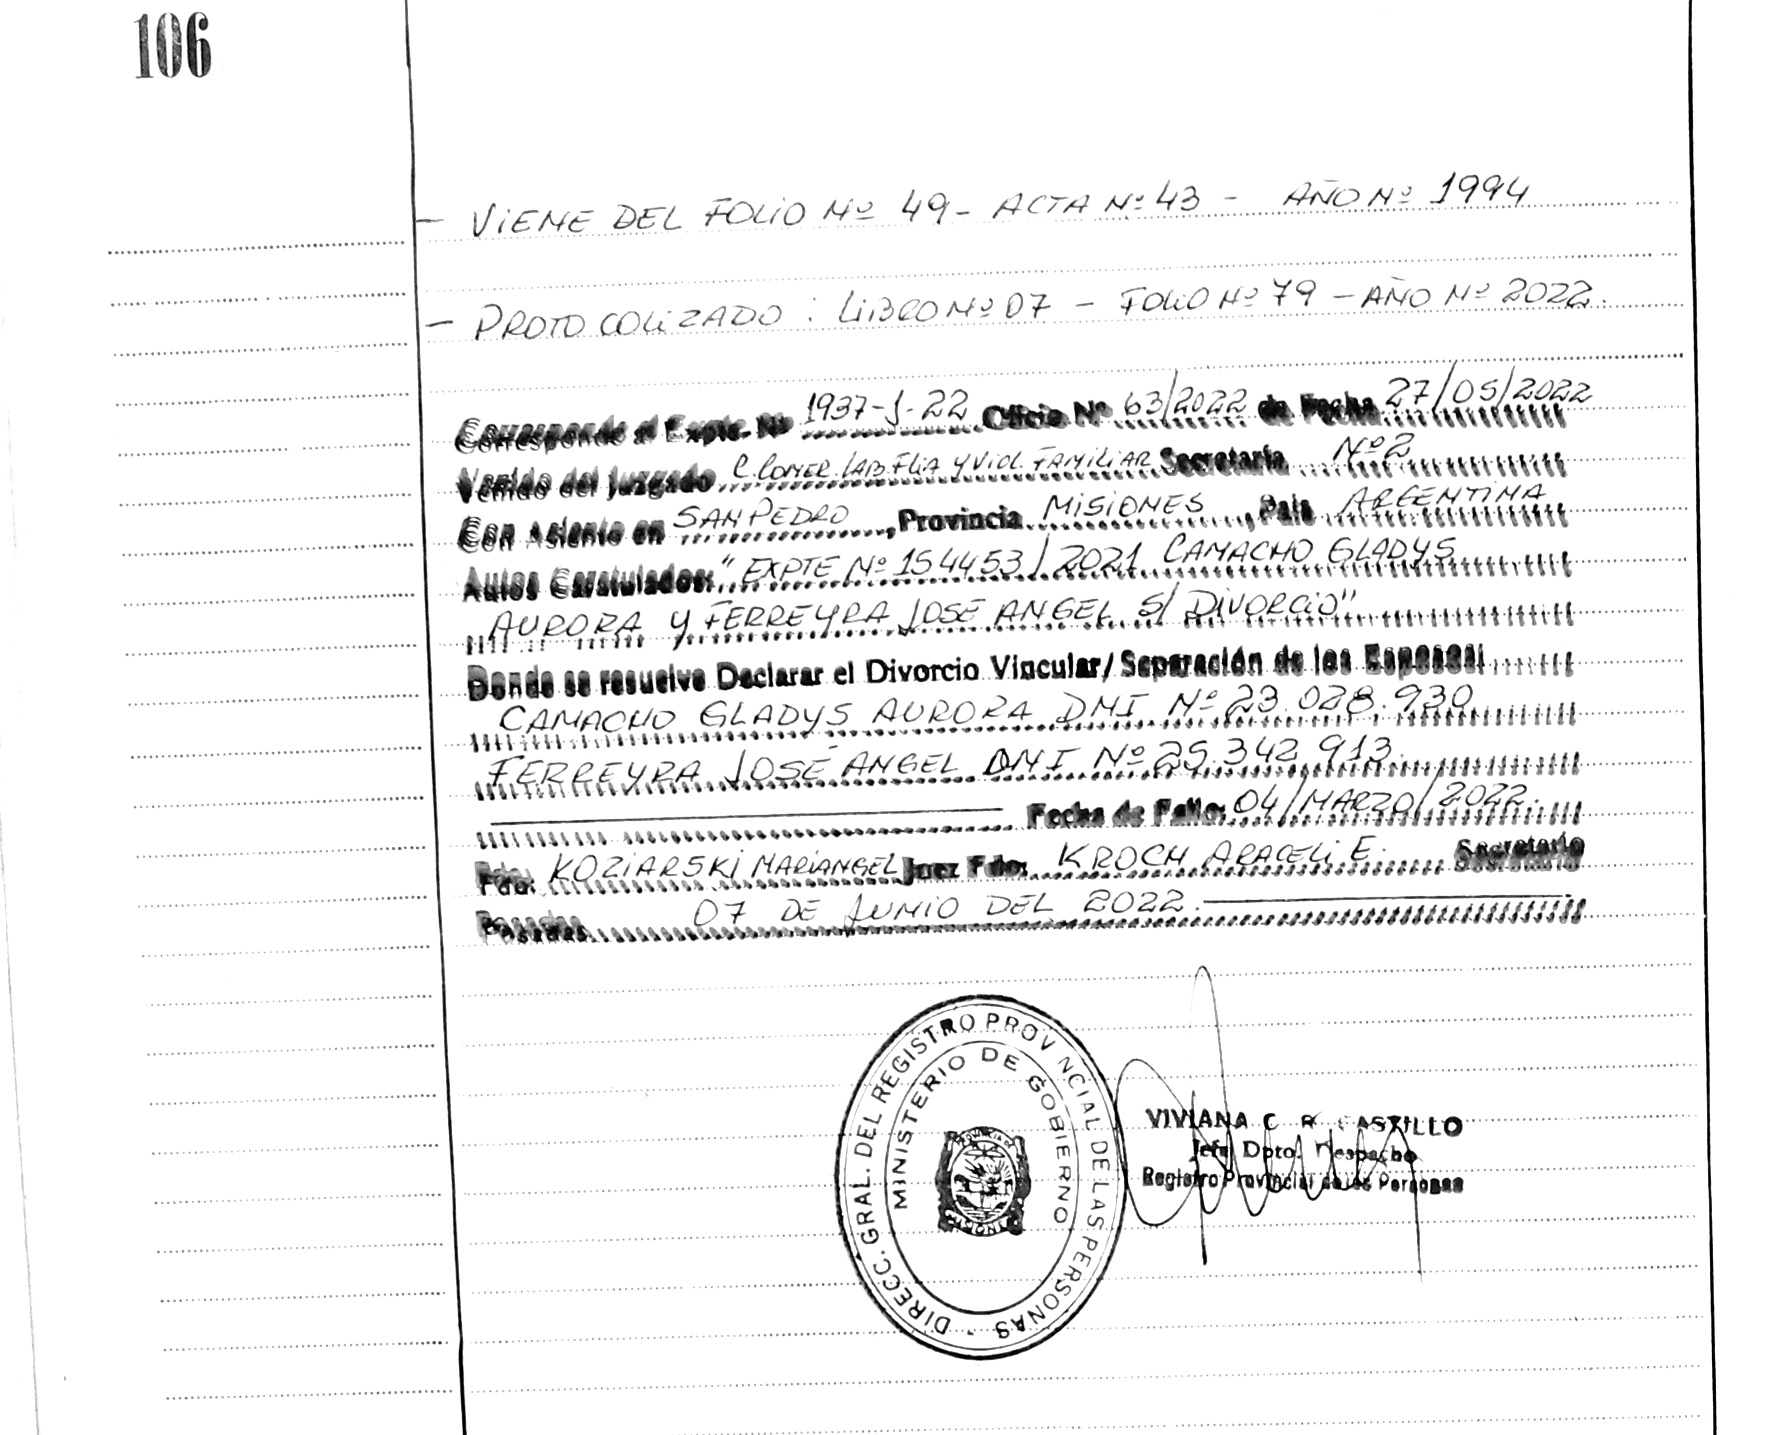 106
- VIENE DEL FOLIO Nº 49 - ACTA Nº 43 - AÑO Nº 1994
- PROTOCOLIZADO : LIBRO Nº 07 - FOLIO Nº 79 - AÑO Nº 2022.
Corresponde al Expte. Nº 1937-J-22 Oficio Nº 63/2022 de Fecha 27/05/2022
Venido del Juzgado C. COMER. LAB. FLIA Y VIOL. FAMILIAR Secretaría Nº 2
Con Asiento en SAN PEDRO, Provincia MISIONES, País ARGENTINA
Autos Caratulados: "EXPTE Nº 154453/2021 CAMACHO GLADYS
AURORA Y FERREYRA JOSÉ ANGEL S/ DIVORCIO"
Donde se resuelve Declarar el Divorcio Vincular/Separación de los Esposos:
CAMACHO GLADYS AURORA DNI Nº 23.028.930
FERREYRA JOSÉ ANGEL DNI Nº 25.342.913.
Fecha de Fallo: 04/MARZO/2022.
Fdo: KOZIARSKI MARIANGEL Juez Fdo: KROCH ARACELI E. Secretario
Posadas, 07 DE JUNIO DEL 2022.
DIRECC. GRAL. DEL REGISTRO PROVINCIAL DE LAS PERSONAS -
MINISTERIO DE GOBIERNO
PROVINCIA DE
MISIONES
VIVIANA C. R. CASTILLO
Jefe Dpto. Despacho
Registro Provincial de las Personas